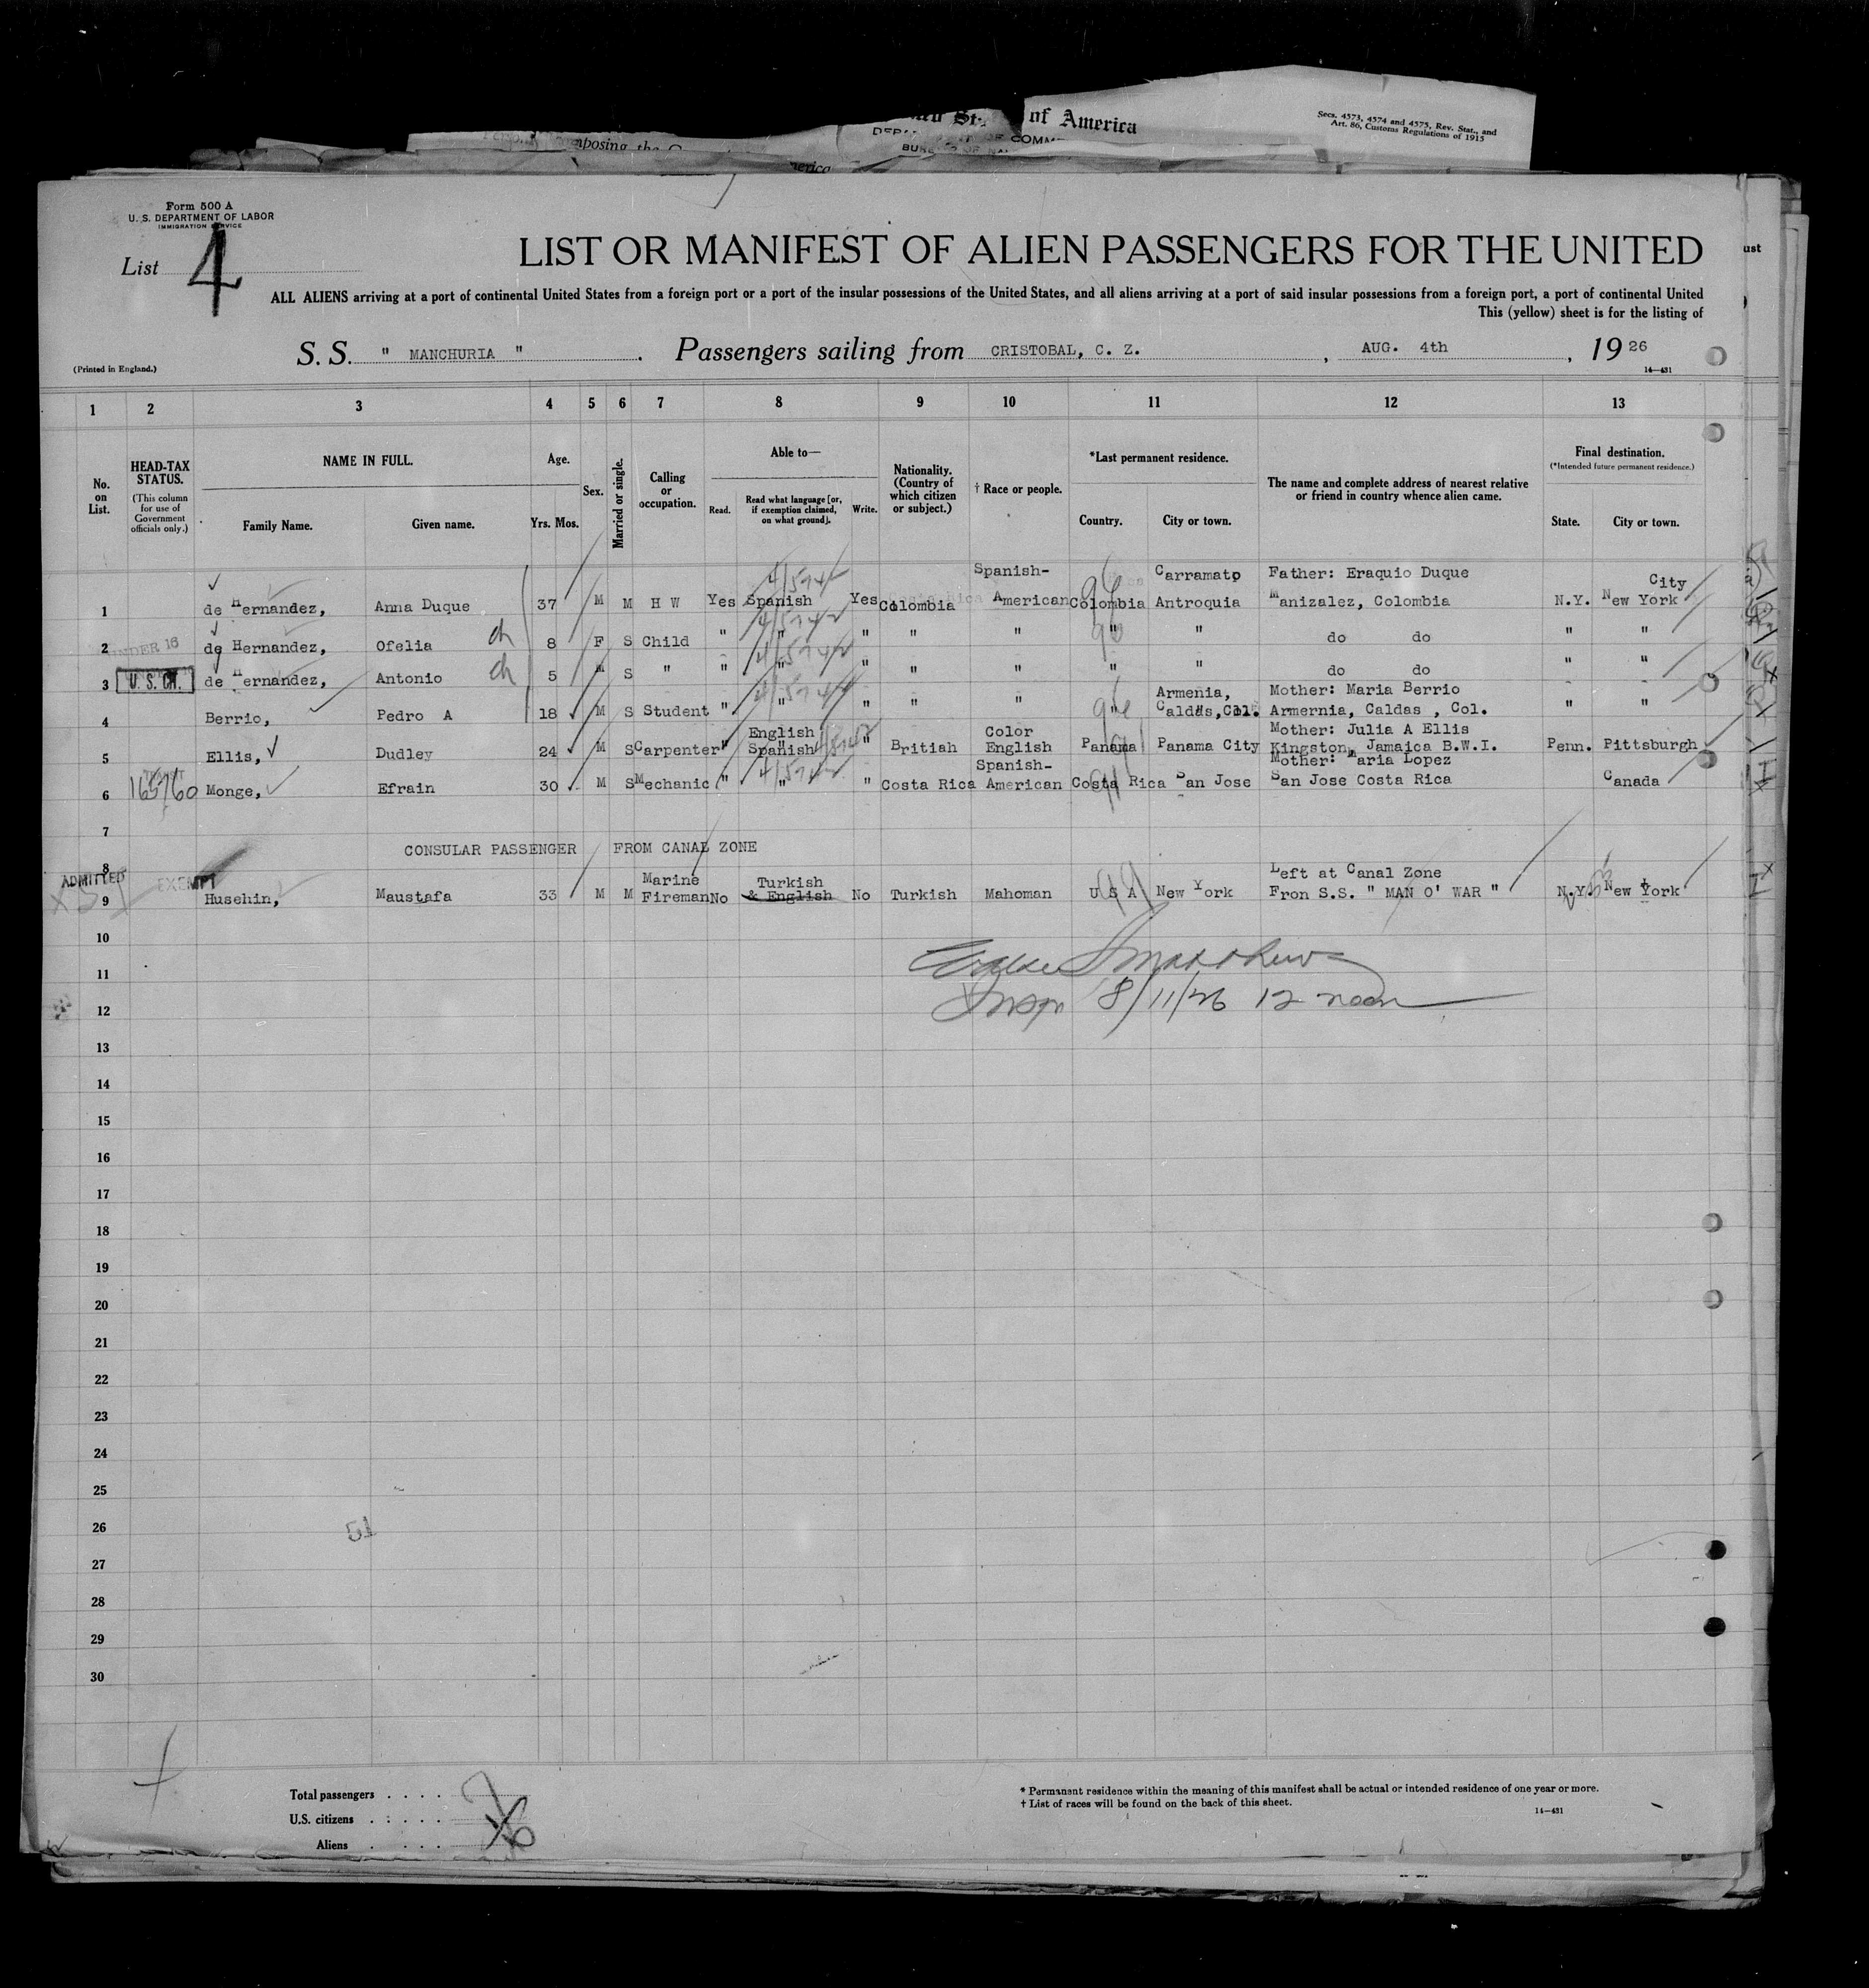 of America
Secs. 4573, 4574 and 4575, Rev. Stat., and
Art. 86, Customs Regulations of 1915
Form 500 A
U. S. DEPARTMENT OF LABOR
IMMIGRATION SERVICE
List 4
LIST OR MANIFEST OF ALIEN PASSENGERS FOR THE UNITED
ALL ALIENS arriving at a port of continental United States from a foreign port or a port of the insular possessions of the United States, and all aliens arriving at a port of said insular possessions from a foreign port, a port of continental United
This (yellow) sheet is for the listing of
S. S. " MANCHURIA " . Passengers sailing from CRISTOBAL, C. Z. , AUG. 4th , 19 26
(Printed in England.)
14—431
1 2 3 4 5 6 7 8 9 10 11 12 13
No. on List.
HEAD-TAX STATUS.
(This column for use of Government officials only.)
NAME IN FULL.
Family Name. Given name.
Age.
Yrs. Mos.
Sex.
Married or single.
Calling or occupation.
Able to—
Read. Read what language [or, if exemption claimed, on what ground]. Write.
Nationality. (Country of which citizen or subject.)
† Race or people.
*Last permanent residence.
Country. City or town.
The name and complete address of nearest relative or friend in country whence alien came.
Final destination.
(*Intended future permanent residence.)
State. City or town.
Spanish- Carramato Father: Eraquio Duque City
1 de Hernandez, Anna Duque 37 M M H W Yes Spanish Yes Colombia American Colombia Antroquia Manizalez, Colombia N.Y. New York
2 UNDER 16 de Hernandez, Ofelia ch 8 F S Child " " " " " " " do do " "
3 U. S. CIT. de Hernandez, Antonio ch 5 M S " " " " " " " " do do " "
Armenia, Mother: Maria Berrio
4 Berrio, Pedro A 18 M S Student " " " " " " Caldas, Col. Armernia, Caldas , Col. " "
English Color Mother: Julia A Ellis
5 Ellis, Dudley 24 M S Carpenter " Spanish " Britiah English Panama Panama City Kingston, Jamaica B.W.I. Penn. Pittsburgh
Spanish- Mother: Maria Lopez
6 Monge, Efrain 30 M S Mechanic " " " Costa Rica American Costa Rica San Jose San Jose Costa Rica Canada
7
CONSULAR PASSENGER FROM CANAL ZONE
8
ADMITTED EXEMPT Marine Turkish Left at Canal Zone
9 Husehin, Maustafa 33 M M Fireman No & English No Turkish Mahoman U S A New York Fron S.S. " MAN O' WAR " N.Y. New York
10
11
Insp 8/11/26 12 noon
12
13
14
15
16
17
18
19
20
21
22
23
24
25
26
51
27
28
29
30
Total passengers . . . .
U.S. citizens . . . . .
Aliens . . . .
* Permanent residence within the meaning of this manifest shall be actual or intended residence of one year or more.
† List of races will be found on the back of this sheet.
14—431